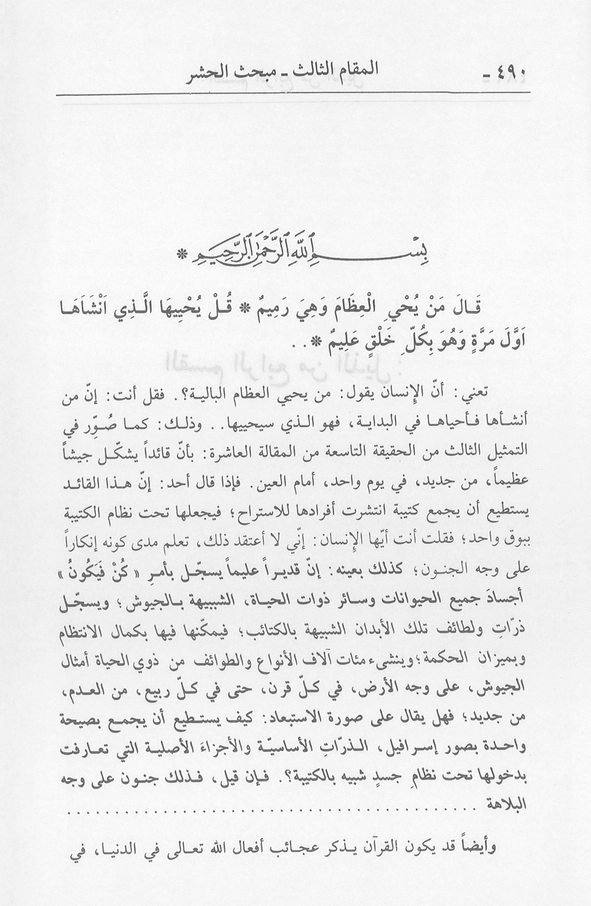 ٤٩٠ - المقام الثالث - مبحث الحشر
بِسْمِ اللَّهِ الرَّحْمَنِ الرَّحِيمِ *
قَالَ مَنْ يُحْيِ الْعِظَامَ وَهِيَ رَمِيمٌ * قُلْ يُحْيِيهَا الَّذِي اَنْشَاَهَا
اَوَّلَ مَرَّةٍ وَهُوَ بِكُلِّ خَلْقٍ عَلِيمٌ * . .
تعني: أنّ الإِنسان يقول: من يحيي العظام البالية؟. فقل أنت: إنّ من
أنشأها فأحياها في البداية، فهو الذي سيحييها.. وذلك: كما صُوّر في
التمثيل الثالث من الحقيقة التاسعة من المقالة العاشرة: بأنّ قائداً يشكّل جيشاً
عظيماً، من جديد، في يوم واحد، أمام العين. فإذا قال أحد: إنّ هذا القائد
يستطيع أن يجمع كتيبة انتشرت أفرادها للاستراح؛ فيجعلها تحت نظام الكتيبة
ببوق واحد؛ فقلت أنت أيّها الإِنسان: إنّي لا أعتقد ذلك، تعلم مدى كونه إنكاراً
على وجه الجنون؛ كذلك بعينه: إنّ قديراً عليماً يسجّل بأمرِ « كُنْ فَيَكُونُ »
أجسادَ جميع الحيوانات وسائر ذوات الحياة، الشبيهة بالجيوش؛ ويسجّل
ذرّاتِ ولطائف تلك الأبدان الشبيهة بالكتائب؛ فيمكّنها فيها بكمال الانتظام
وبميزان الحكمة؛ وينشىء مئات آلاف الأنواع والطوائف من ذوي الحياة أمثال
الجيوش، على وجه الأرض، في كلّ قرن، حتى في كلّ ربيع، من العدم،
من جديد؛ فهل يقال على صورة الاستبعاد: كيف يستطيع أن يجمع بصيحة
واحدة بصور إسرافيل، الذرّاتِ الأساسيّة والأجزاءَ الأصلية التي تعارفت
بدخولها تحت نظامِ جسدٍ شبيه بالكتيبة؟. فإن قيل، فذلك جنون على وجه
البلاهة . . . . . . . . . . . . . . . . . . . . . . . . . . . . . . . . . . . . . .
وأيضاً قد يكون القرآن يذكر عجائب أفعال الله تعالى في الدنيا، في